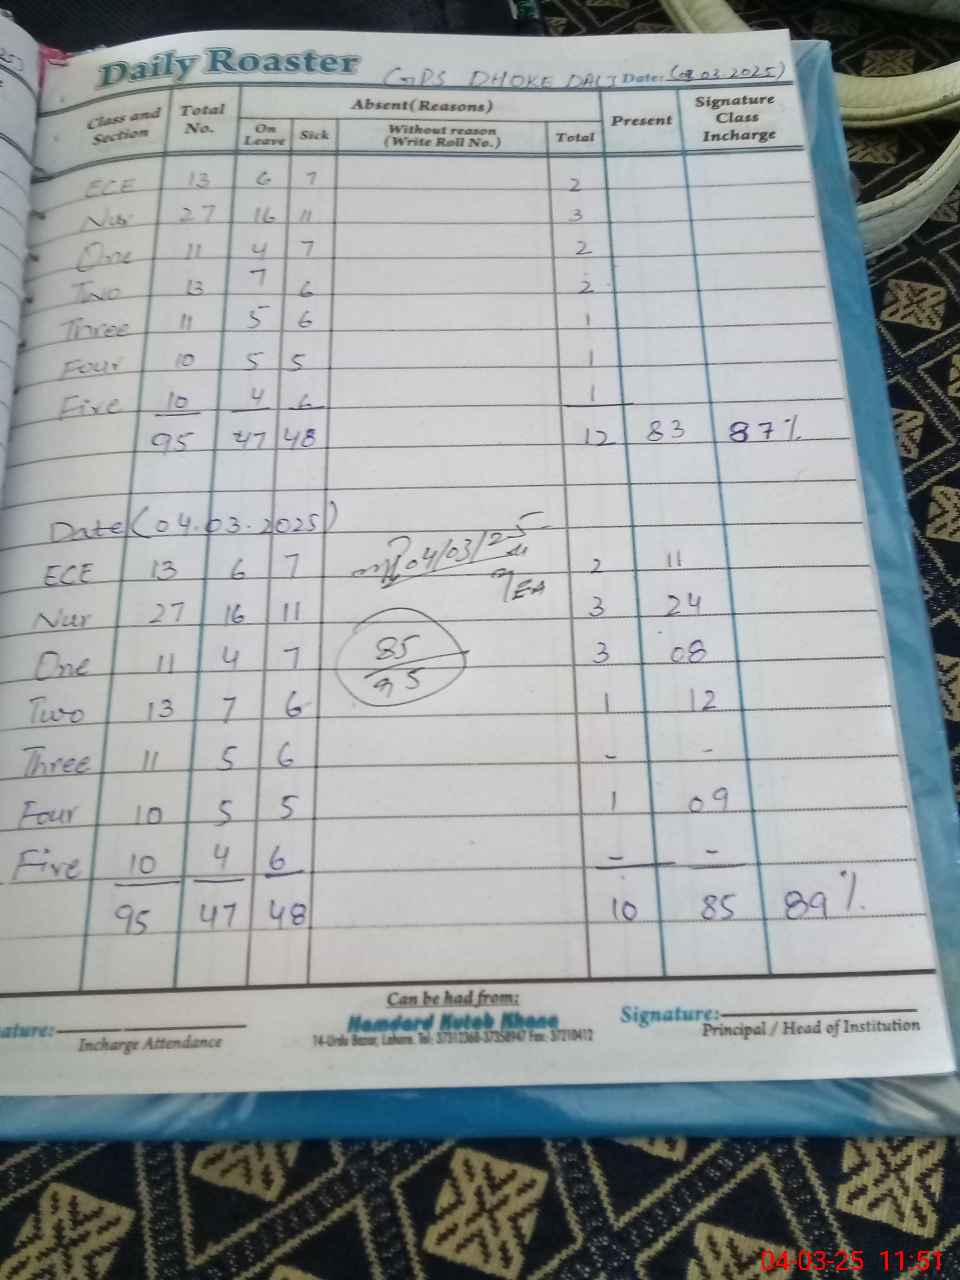 Daily Roaster GPS DHOKE DALI Date: (03.03.2025)
Class and Section Total No. Absent(Reasons) Present Signature Class Incharge
On Leave Sick Without reason (Write Roll No.) Total
ECE 13 6 7 2
Nur 27 16 11 3
One 11 4 7 2
Two 13 7 6 2
Three 11 5 6 1
Four 10 5 5 1
Five 10 4 6 1
95 47 48 12 83 87%
Date (04.03.2025)
04/03/25
ECE 13 6 7 2 11
AEA
Nur 27 16 11 3 24
One 11 4 7 85/95 3 08
Two 13 7 6 1 12
Three 11 5 6 - -
Four 10 5 5 1 09
Five 10 4 6 - -
95 47 48 10 85 89%
Can be had from:
ature: Hamdard Kutab Khana Signature:
Incharge Attendance 14-Urdu Bazar, Lahore. Tel: 37312368-37358947 Fax: 37210412 Principal / Head of Institution
04-03-25 11:51